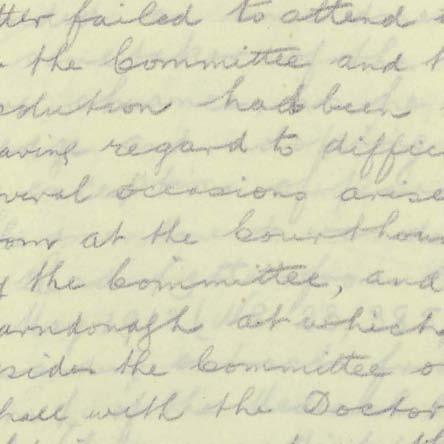 tter failed to attend
the Committee and t
solution had been
aving regard to diffic
veral occasions arise
oom at the Courthou
y the Committee, and
arndonagh at which
sides the Committee o
hall with the Doctor